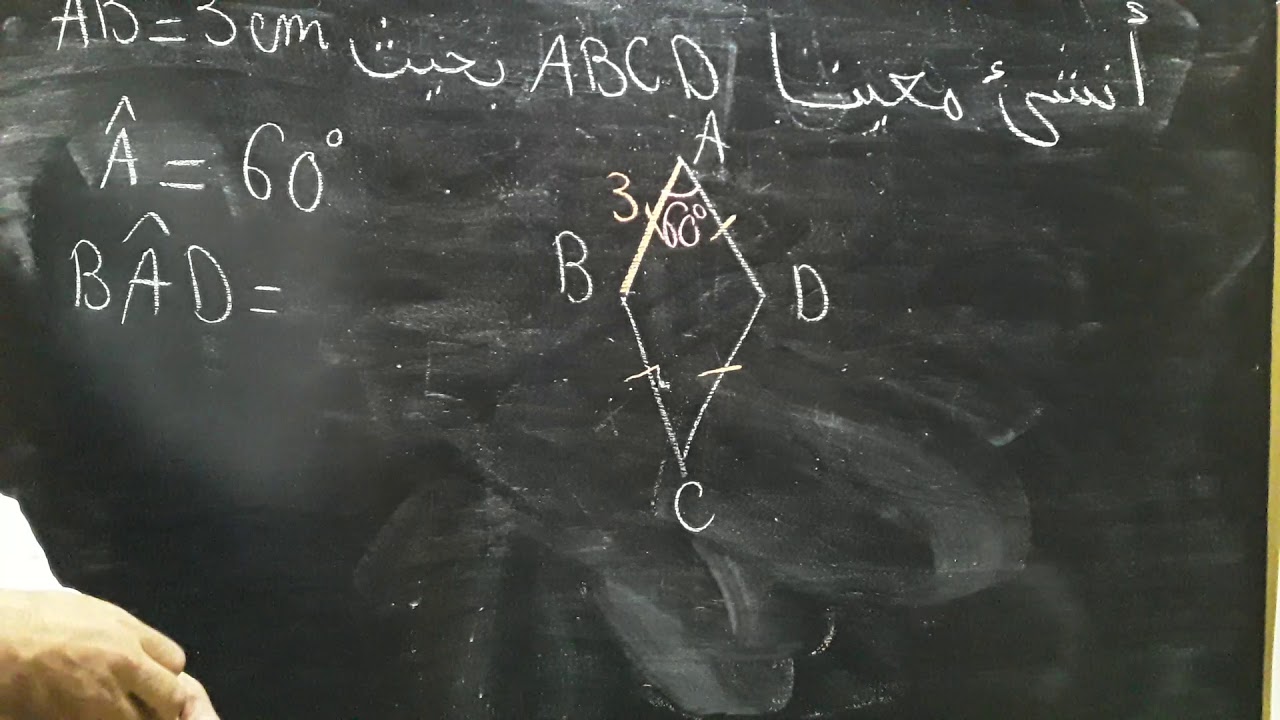 أنشئ معينا ABCD بحيث AB = 3cm
Â = 60°
BÂD =
A
3
60°
B
D
C